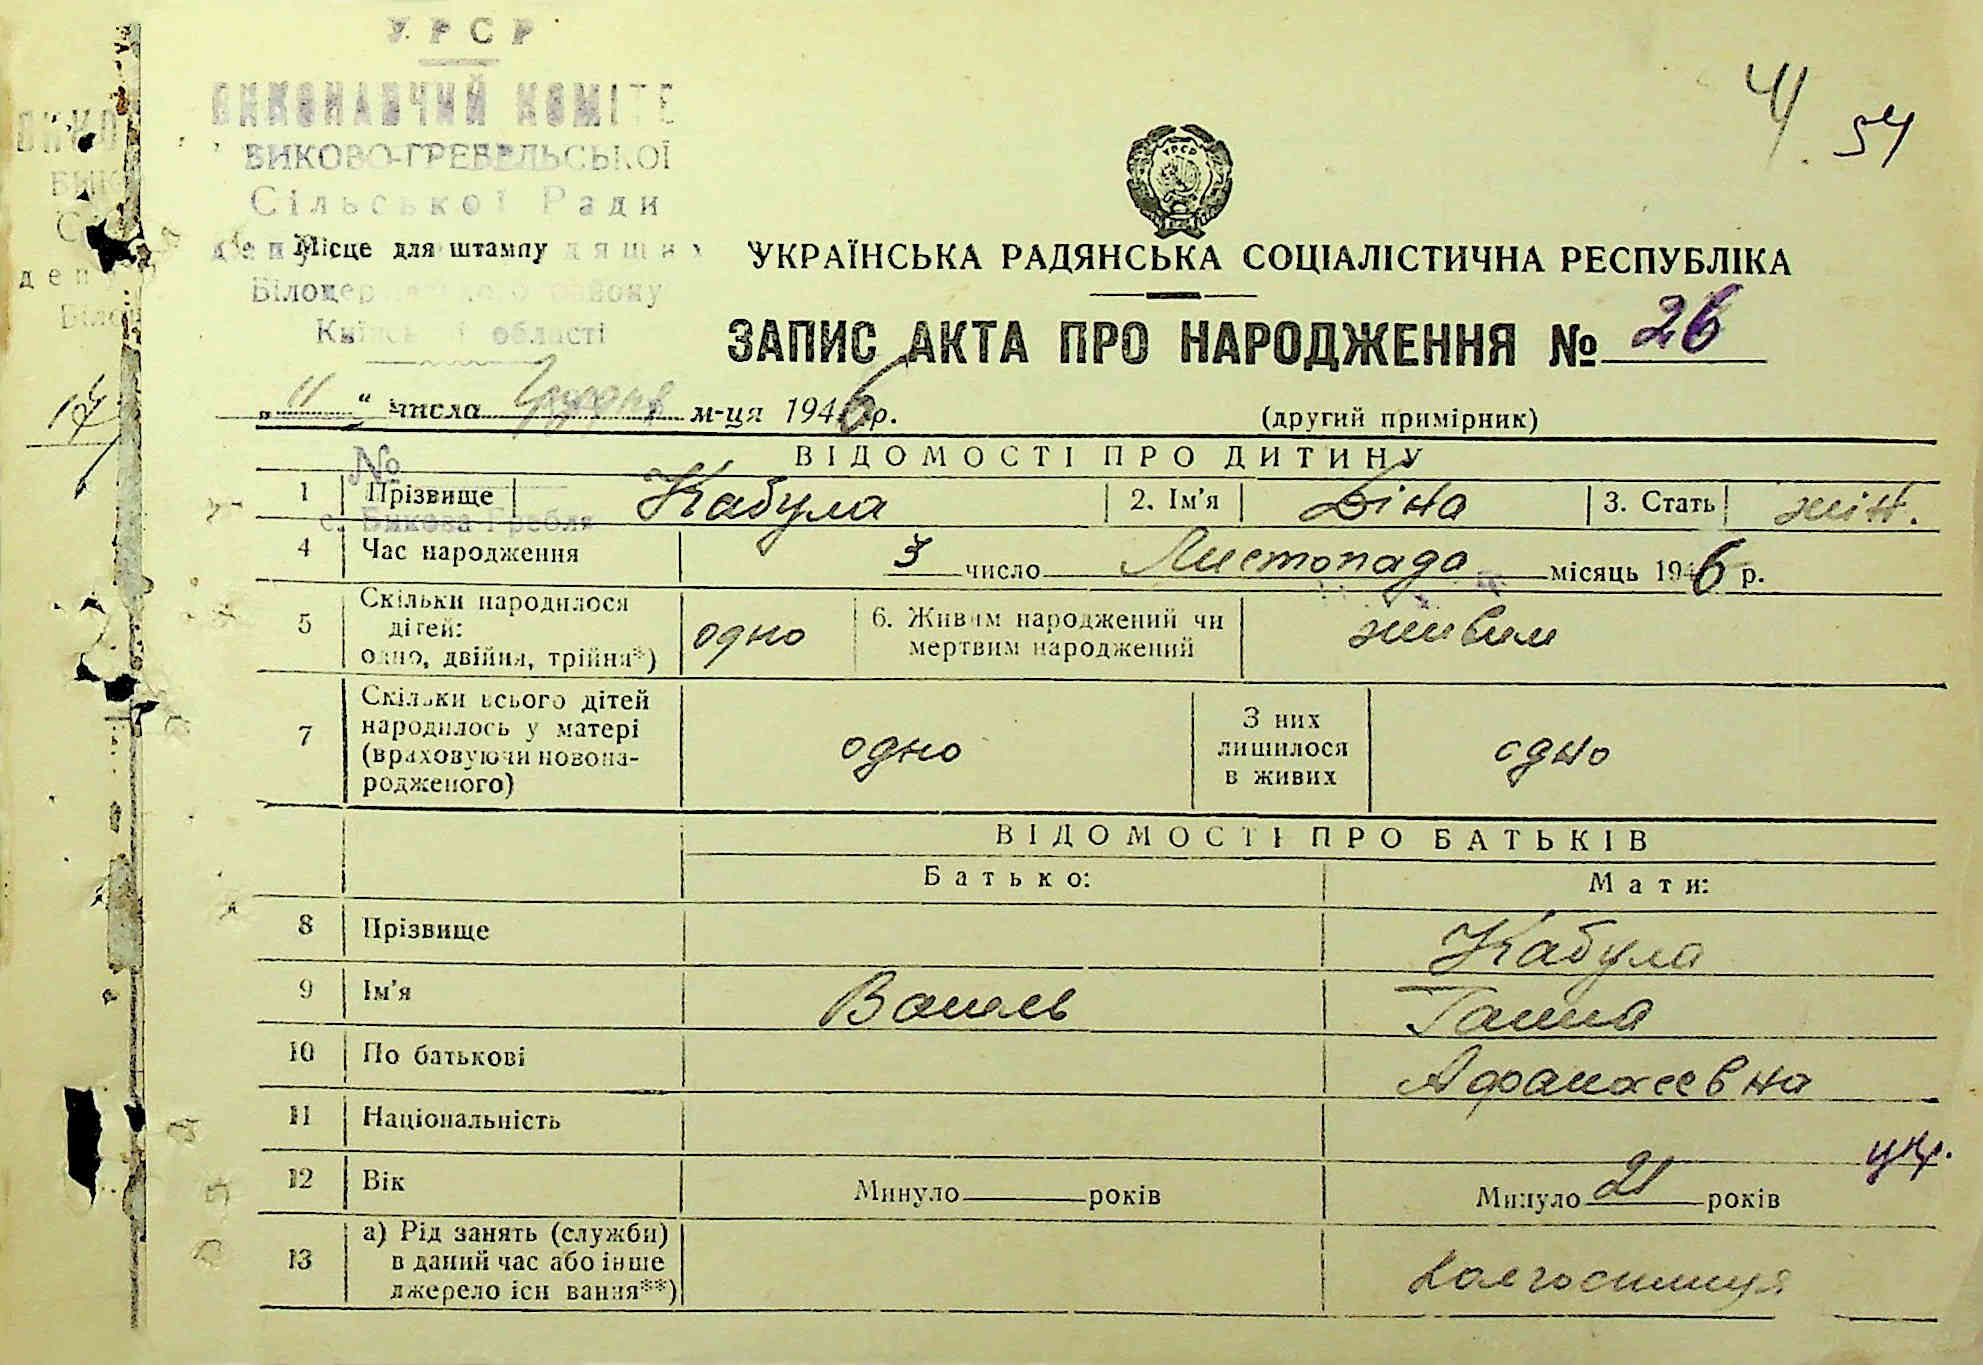 УРСР
ВИКОНАВЧИЙ КОМІТЕ
БИКОВО-ГРЕБЕЛЬСЬКОЇ
Сільської Ради
Місце для штампу
Білоцерківського району
Київської області
4
54
УРСР
УКРАЇНСЬКА РАДЯНСЬКА СОЦІАЛІСТИЧНА РЕСПУБЛІКА
ЗАПИС АКТА ПРО НАРОДЖЕННЯ № 26
„11“ числа Грудня м-ця 1946 р.
(другий примірник)
ВІДОМОСТІ ПРО ДИТИНУ
№
1 Прізвище Кабула 2. Ім'я Діна 3. Стать жін.
с. Бикова Гребля
4 Час народження 3 число Листопада місяць 1946 р.
5 Скільки народилося дітей: одно, двійня, трійня*) одно 6. Живим народжений чи мертвим народжений живим
7 Скільки всього дітей народилось у матері (враховуючи новонародженого) одно З них лишилося в живих одно
ВІДОМОСТІ ПРО БАТЬКІВ
Батько: Мати:
8 Прізвище Кабула
9 Ім'я Ганна
10 По батькові Афанасевна
11 Національність укр.
12 Вік Минуло років Минуло 21 років
13 а) Рід занять (служби) в даний час або інше джерело існування**) колгоспниця